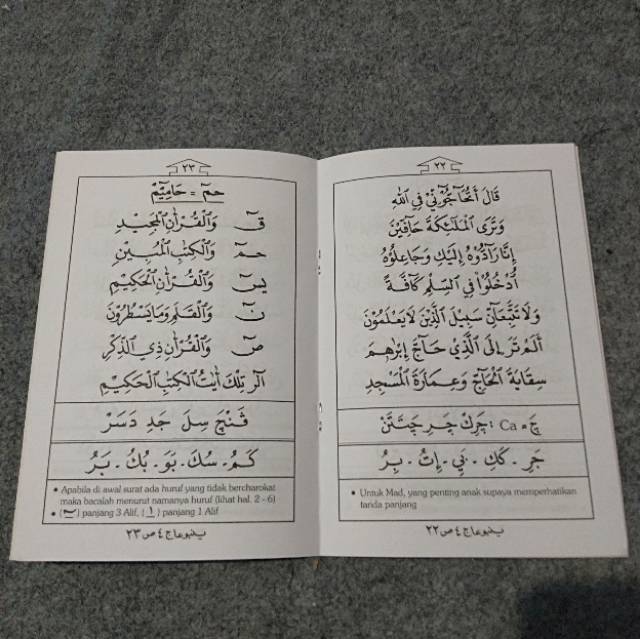 ٢٢
قَالَ أَتُحَآجُّوٓنِّيْ فِي اللّٰهِ
وَتَرَى الْمَلٰٓئِكَةَ حَآفِّيْنَ
إِنَّا رَآدُّوْهُ إِلَيْكِ وَجَاعِلُوْهُ
أُدْخُلُوْا فِي السِّلْمِ كَآفَّةً
وَلَا تَتَّبِعَآنِّ سَبِيْلَ الَّذِيْنَ لَا يَعْلَمُوْنَ
أَلَمْ تَرَ إِلَى الَّذِيْ حَآجَّ إِبْرٰهِمَ
سِقَايَةَ الْحَآجِّ وَعِمَارَةَ الْمَسْجِدِ
چَ = Ca : چَرِكْ چَرِ چَتَتَنْ
جَرِ . كَكِ . نَيِ . اِتُ . بِرُ
• Untuk Mad, yang penting anak supaya memperhatikan
tanda panjang
ينبوعا ج ٤ ص ٢٢
٢٣
حٰمٓ = حَامِيْٓمْ
قٓ وَالْقُرْاٰنِ الْمَجِيْدِ
حٰمٓ وَالْكِتٰبِ الْمُبِيْنِ
يٰسٓ وَالْقُرْاٰنِ الْحَكِيْمِ
نٓ وَالْقَلَمِ وَمَا يَسْطُرُوْنَ
صٓ وَالْقُرْاٰنِ ذِي الذِّكْرِ
الٓرٰ تِلْكَ اٰيٰتُ الْكِتٰبِ الْحَكِيْمِ
فَنْچَ سِلَ جَدِ دَسَرْ
كَمُ . سُكَ . بَوَ . بُكُ . بَرُ
• Apabila di awal surat ada huruf yang tidak bercharokat
maka bacalah menurut namanya huruf (lihat hal. 2 - 6)
• (ــٓـ) panjang 3 Alif, (ــٰـ) panjang 1 Alif
ص ٢٣